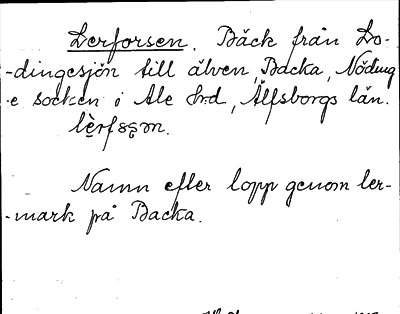 Lerforsen. Bäck från Lo-
-dingesjön till älven, Backa, Nöding-
-e socken i Ale hd, Älfsborgs län.
Namn efter lopp genom ler-
-mark på Backa.